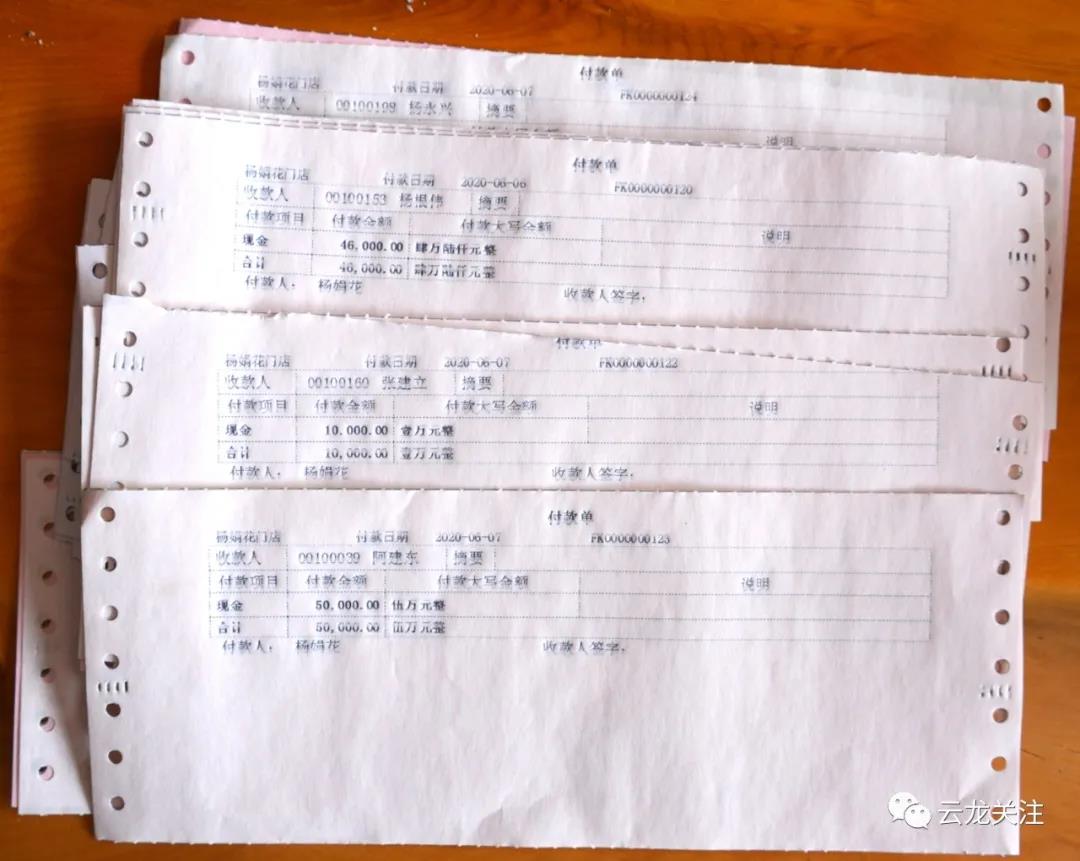 付款单
杨娟花门店 付款日期 2020-06-07 FK0000000124
收款人 00100198 杨永兴 摘要
说明
付款单
杨娟花门店 付款日期 2020-06-06 FK0000000120
收款人 00100153 杨根伟 摘要
付款项目 付款金额 付款大写金额 说明
现金 46,000.00 肆万陆仟元整
合计 46,000.00 肆万陆仟元整
付款人: 杨娟花 收款人签字:
付款单
杨娟花门店 付款日期 2020-06-07 FK0000000122
收款人 00100160 张建立 摘要
付款项目 付款金额 付款大写金额 说明
现金 10,000.00 壹万元整
合计 10,000.00 壹万元整
付款人: 杨娟花 收款人签字:
付款单
杨娟花门店 付款日期 2020-06-07 FK0000000123
收款人 00100039 阿建东 摘要
付款项目 付款金额 付款大写金额 说明
现金 50,000.00 伍万元整
合计 50,000.00 伍万元整
付款人: 杨娟花 收款人签字:
云龙关注